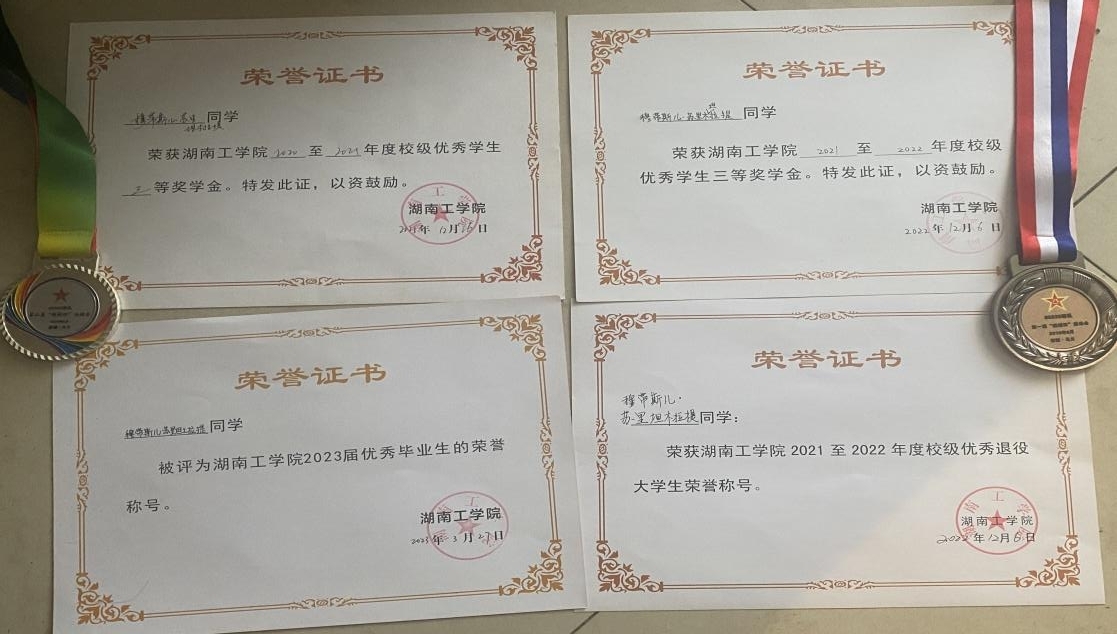 荣誉证书
穆蒂斯儿·苏里坦木拉提同学
荣获湖南工学院 2020 至 2021 年度校级优秀学生
三等奖学金。特发此证，以资鼓励。
湖南工学院
年12月 日
荣誉证书
穆蒂斯儿·苏里坦木拉提同学
荣获湖南工学院 2021 至 2022 年度校级
优秀学生三等奖学金。特发此证，以资鼓励。
湖南工学院
2022年12月6日
荣誉证书
穆蒂斯儿·苏里坦木拉提同学
被评为湖南工学院2023届优秀毕业生的荣誉
称号。
湖南工学院
2023年3月27日
荣誉证书
穆蒂斯儿·
苏里坦木拉提同学：
荣获湖南工学院 2021 至 2022 年度校级优秀退役
大学生荣誉称号。
湖南工学院
2022年12月6日